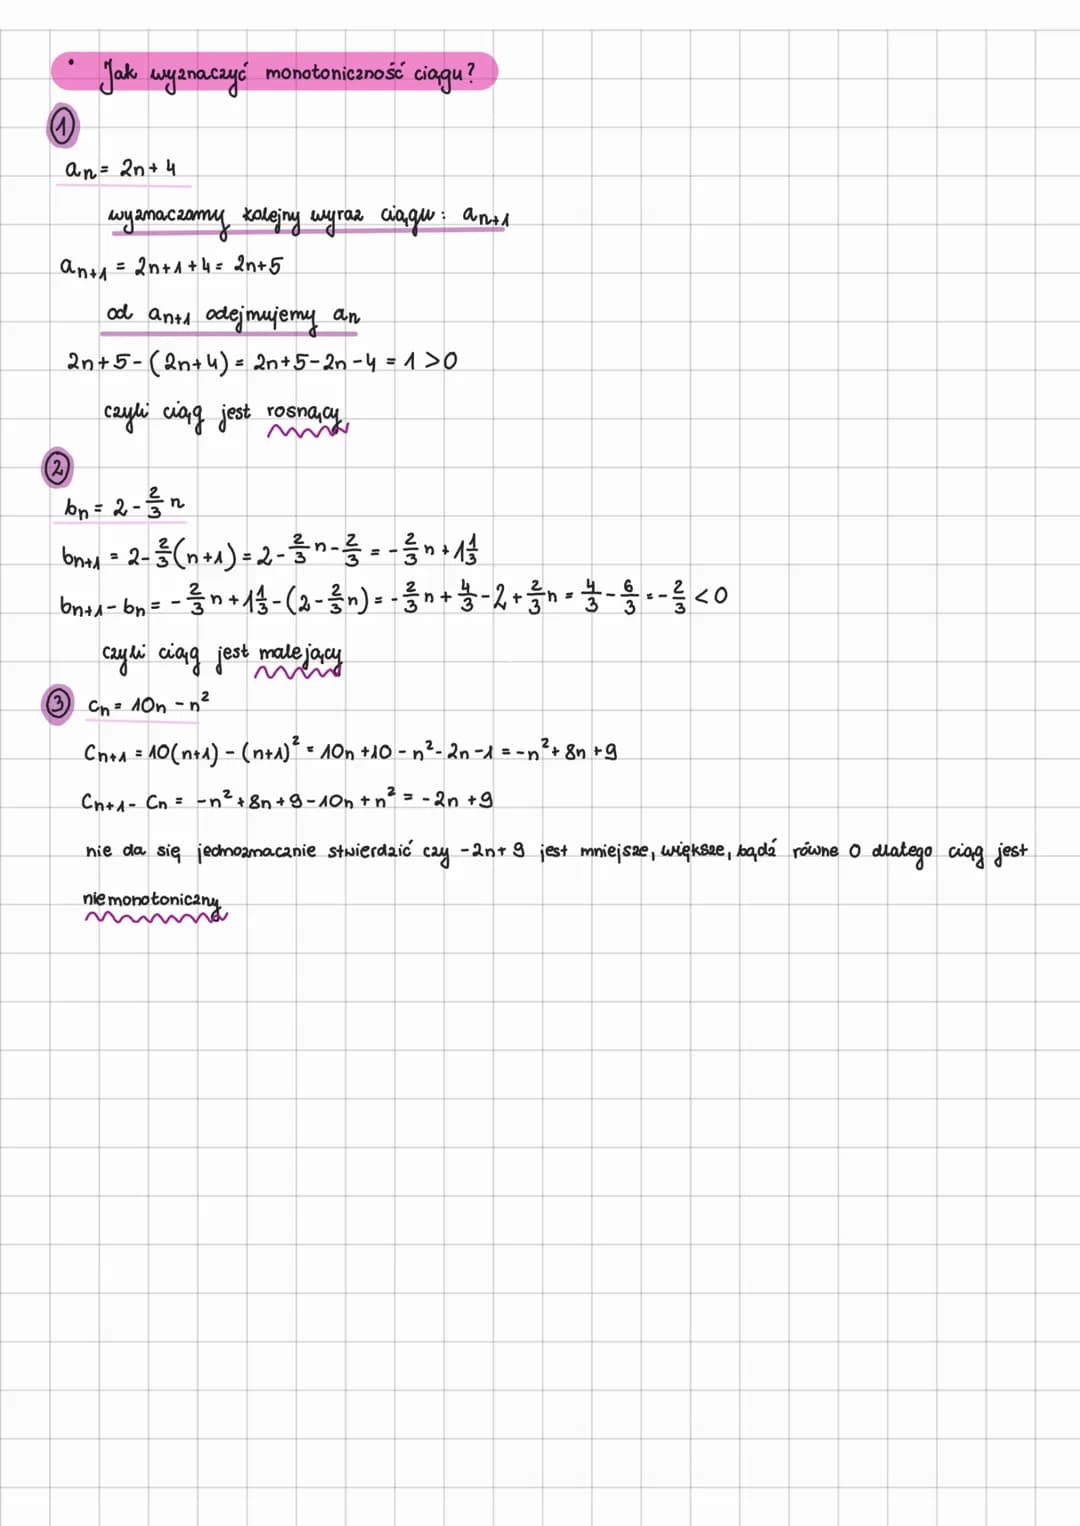 • Jak wyznaczyć monotoniczność ciągu?
①
an = 2n + 4
wyznaczamy kolejny wyraz ciągu: an+1
an+1 = 2n+1+4 = 2n+5
od an+1 odejmujemy an
2n+5-(2n+4) = 2n+5-2n-4 = 1 >0
czyli ciąg jest rosnący
②
bn = 2 - 2/3 n
bn+1 = 2 - 2/3(n+1) = 2 - 2/3 n - 2/3 = - 2/3 n + 1 1/3
bn+1 - bn = - 2/3 n + 1 1/3 - (2 - 2/3 n) = - 2/3 n + 4/3 - 2 + 2/3 n = 4/3 - 6/3 = - 2/3 < 0
czyli ciąg jest malejący
③ cn = 10n - n²
Cn+1 = 10(n+1) - (n+1)² = 10n +10 - n² - 2n - 1 = -n² + 8n + 9
Cn+1 - Cn = -n² + 8n + 9 - 10n + n² = -2n + 9
nie da się jednoznacznie stwierdzić czy -2n+9 jest mniejsze, większe, bądź równe 0 dlatego ciąg jest
niemonotoniczny